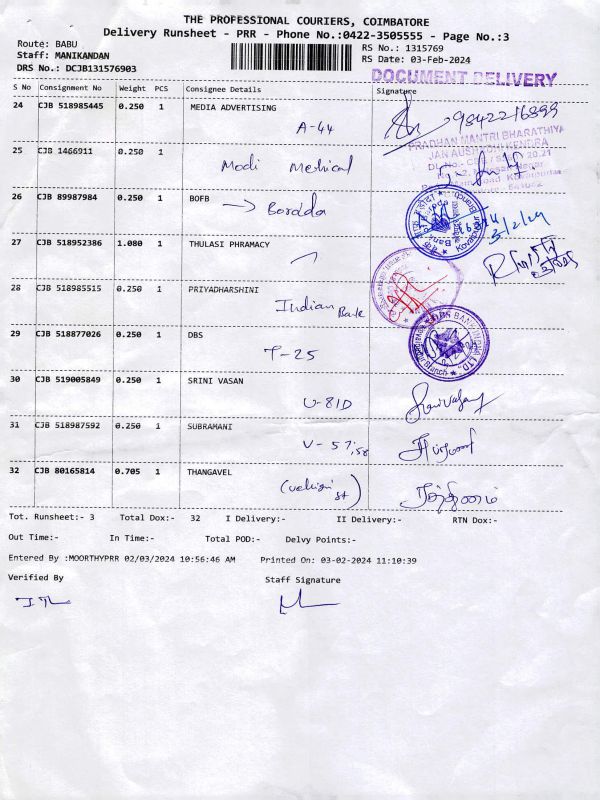 THE PROFESSIONAL COURIERS, COIMBATORE
Delivery Runsheet - PRR - Phone No.:0422-3505555 - Page No.:3
Route: BABU
RS No.: 1315769
Staff: MANIKANDAN
RS Date: 03-Feb-2024
DRS No.: DCJB131576903
DOCUMENT DELIVERY
S No Consignment No Weight PCS Consignee Details Signature
24 CJB 518985445 0.250 1 MEDIA ADVERTISING
A-44
9842216899
PRADHAN MANTRI BHARATHIYA
JAN AUSHADHI KENDRA
25 CJB 1466911 0.250 1
Modi Medical
26 CJB 89987984 0.250 1 BOFB
Boroda
3/2/24
27 CJB 518952386 1.080 1 THULASI PHRAMACY
28 CJB 518985515 0.250 1 PRIYADHARSHINI
Indian Bank
29 CJB 518877026 0.250 1 DBS
T-25
DBS BANK INDIA LTD.
Branch
30 CJB 519005849 0.250 1 SRINI VASAN
U-81D
31 CJB 518987592 0.250 1 SUBRAMANI
V-57,58
32 CJB 80165814 0.705 1 THANGAVEL
Tot. Runsheet:- 3 Total Dox:- 32 I Delivery:- II Delivery:- RTN Dox:-
Out Time:- In Time:- Total POD:- Delvy Points:-
Entered By :MOORTHYPRR 02/03/2024 10:56:46 AM Printed On: 03-02-2024 11:10:39
Verified By Staff Signature